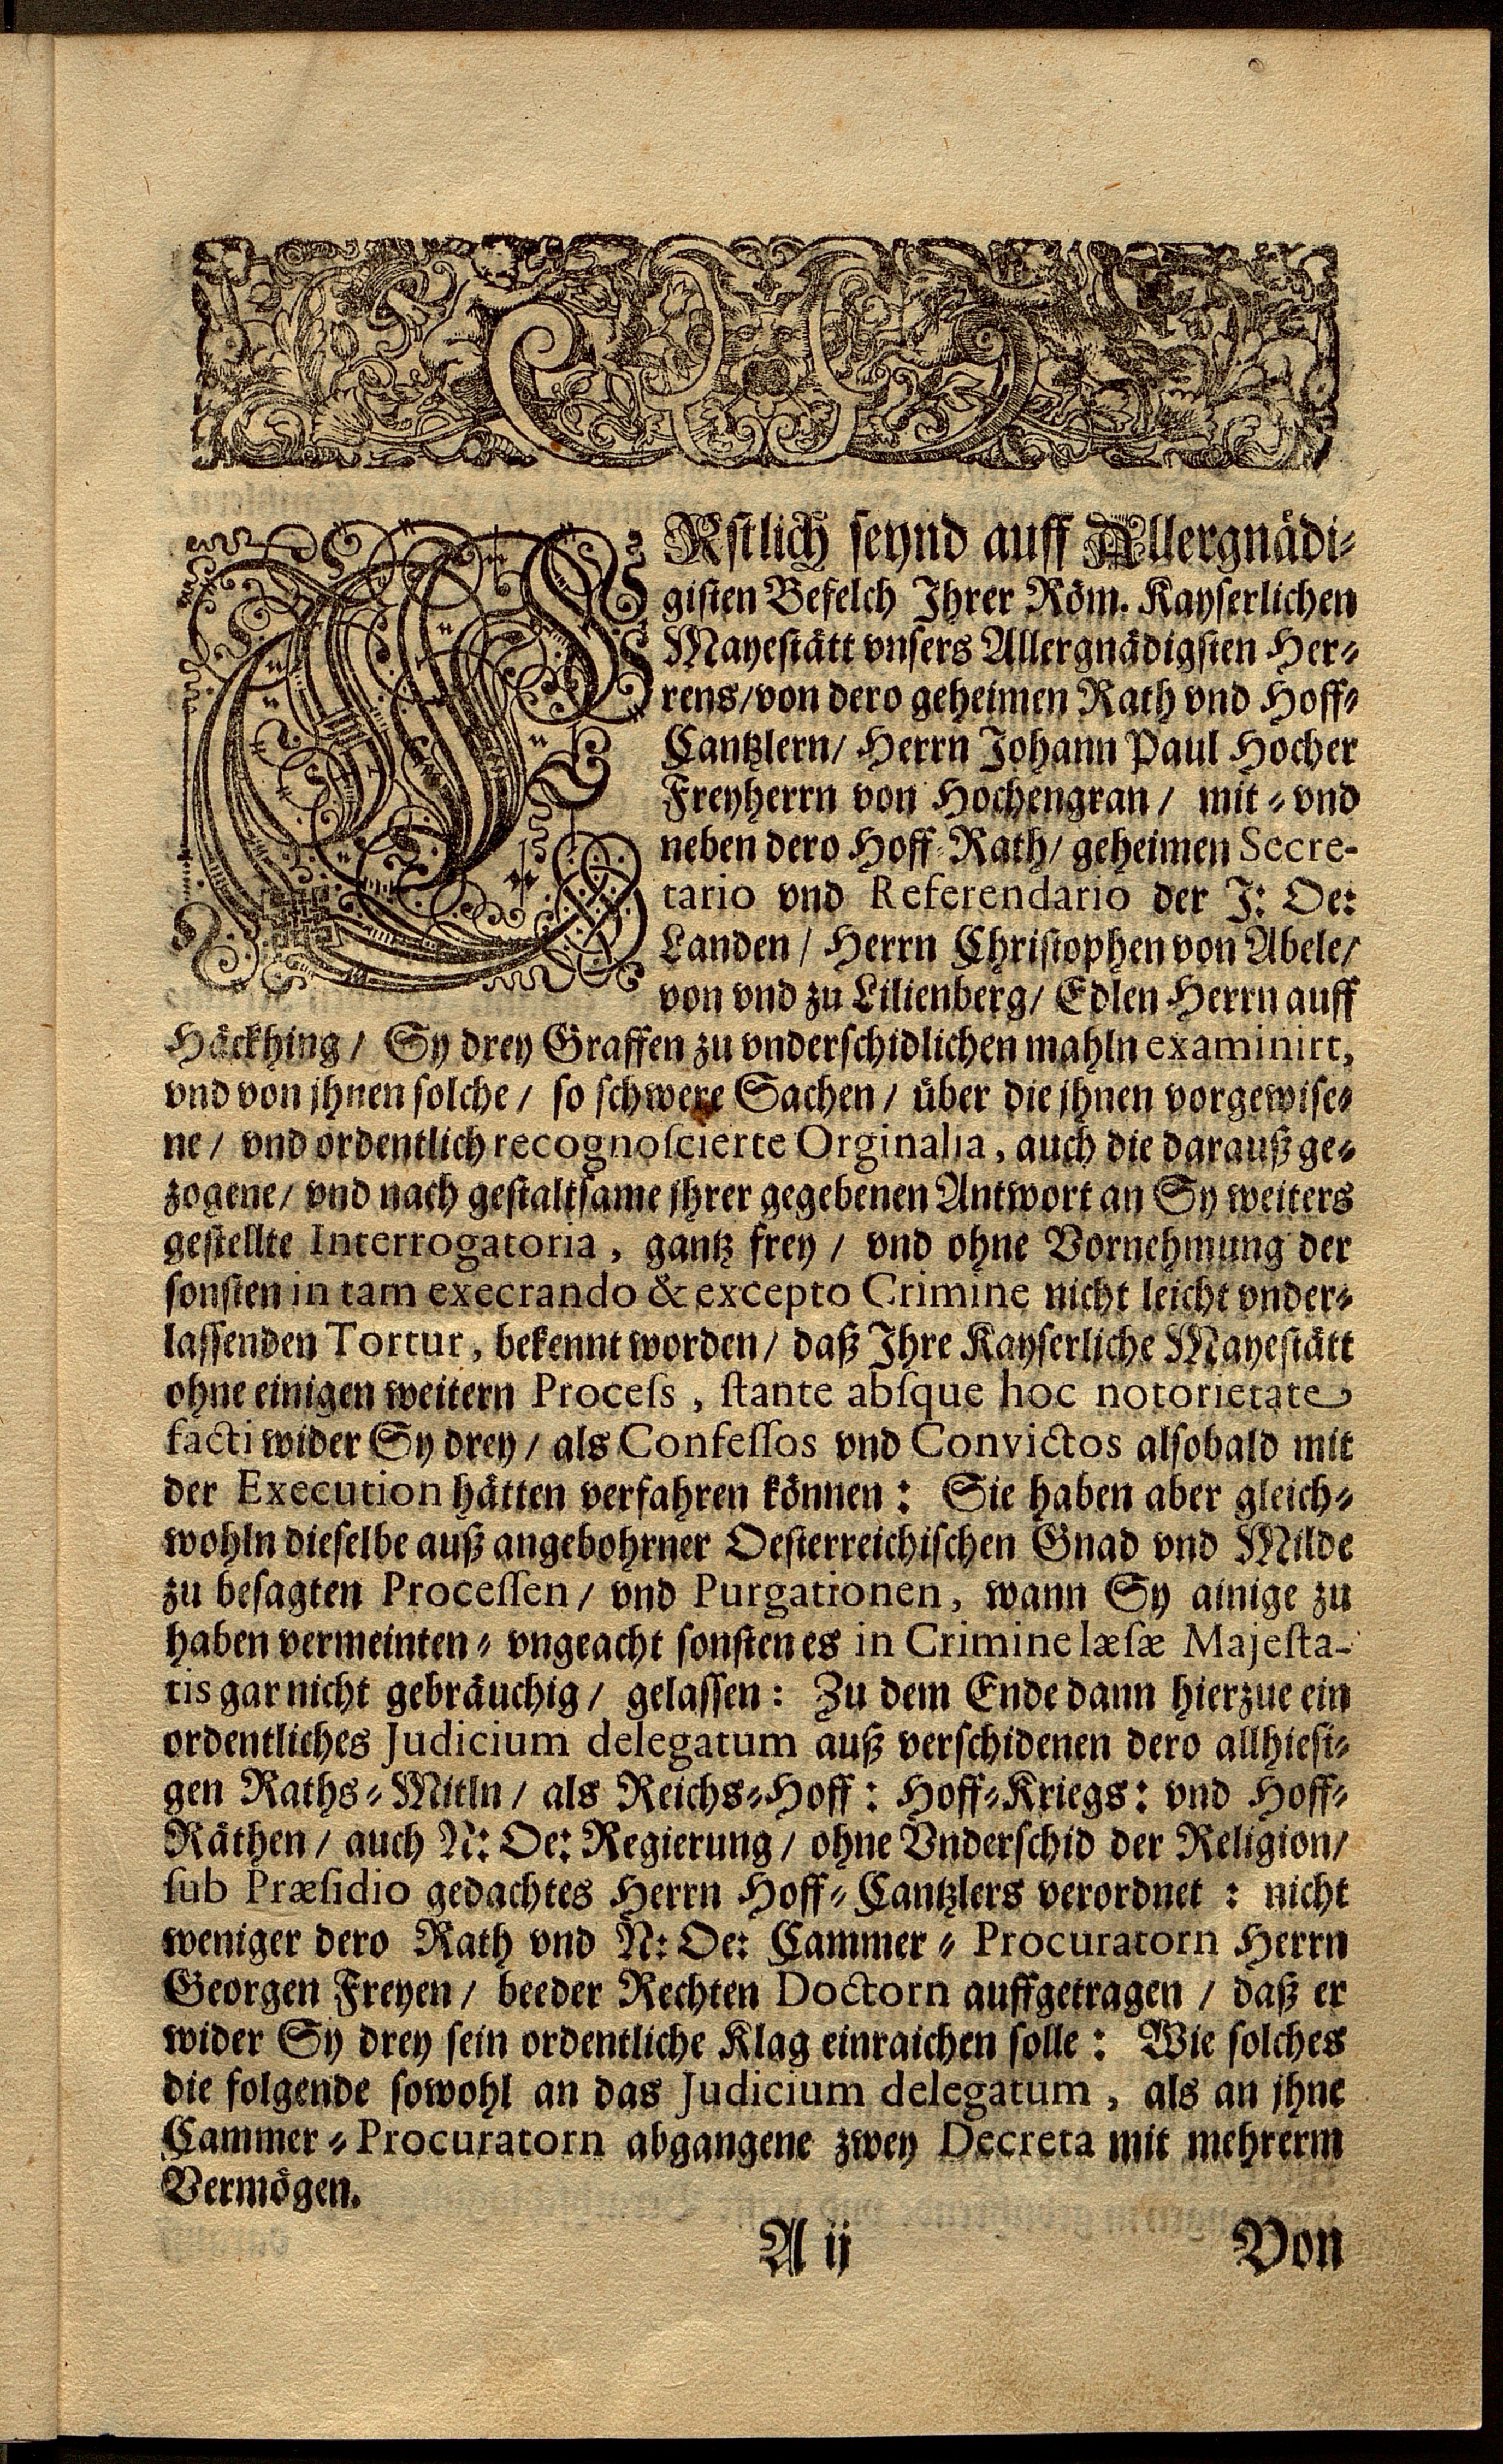 ERstlich seynd auff Allergnädi-
gisten Befelch Ihrer Röm. Kayserlichen
Mayestätt vnsers Allergnädigsten Her-
rens/ von dero geheimen Rath vnd Hoff-
Cantzlern/ Herrn Johann Paul Hocher
Freyherrn von Hochengran/ mit- vnd
neben dero Hoff-Rath/ geheimen Secre-
tario vnd Referendario der J: Oe:
Landen/ Herrn Christophen von Abele/
von vnd zu Lilienberg/ Edlen Herrn auff
Häckhing/ Sy drey Graffen zu vnderschidlichen mahln examinirt,
vnd von jhnen solche/ so schwere Sachen/ über die jhnen vorgewise-
ne/ vnd ordentlich recognoscierte Orginalia, auch die darauß ge-
zogene/ vnd nach gestaltsame jhrer gegebenen Antwort an Sy weiters
gestellte Interrogatoria, gantz frey/ vnd ohne Vornehmung der
sonsten in tam execrando & excepto Crimine nicht leicht vnder-
lassenden Tortur, bekennt worden/ daß Ihre Kayserliche Mayestätt
ohne einigen weitern Process, stante absque hoc notorietate
facti wider Sy drey/ als Confessos vnd Convictos alsobald mit
der Execution hätten verfahren können: Sie haben aber gleich-
wohln dieselbe auß angebohrner Oesterreichischen Gnad vnd Milde
zu besagten Processen/ vnd Purgationen, wann Sy ainige zu
haben vermeinten- vngeacht sonsten es in Crimine læsæ Majesta-
tis gar nicht gebräuchig/ gelassen: Zu dem Ende dann hierzue ein
ordentliches Judicium delegatum auß verschidenen dero allhiesi-
gen Raths-Mitln/ als Reichs-Hoff: Hoff-Kriegs: vnd Hoff-
Räthen/ auch N: Oe: Regierung/ ohne Vnderschid der Religion/
sub Præsidio gedachtes Herrn Hoff-Cantzlers verordnet: nicht
weniger dero Rath vnd N: Oe: Cammer-Procuratorn Herrn
Georgen Freyen/ beeder Rechten Doctorn auffgetragen/ daß er
wider Sy drey sein ordentliche Klag einraichen solle: Wie solches
die folgende sowohl an das Judicium delegatum, als an jhne
Cammer-Procuratorn abgangene zwey Decreta mit mehrerm
Vermögen.
A ij Von